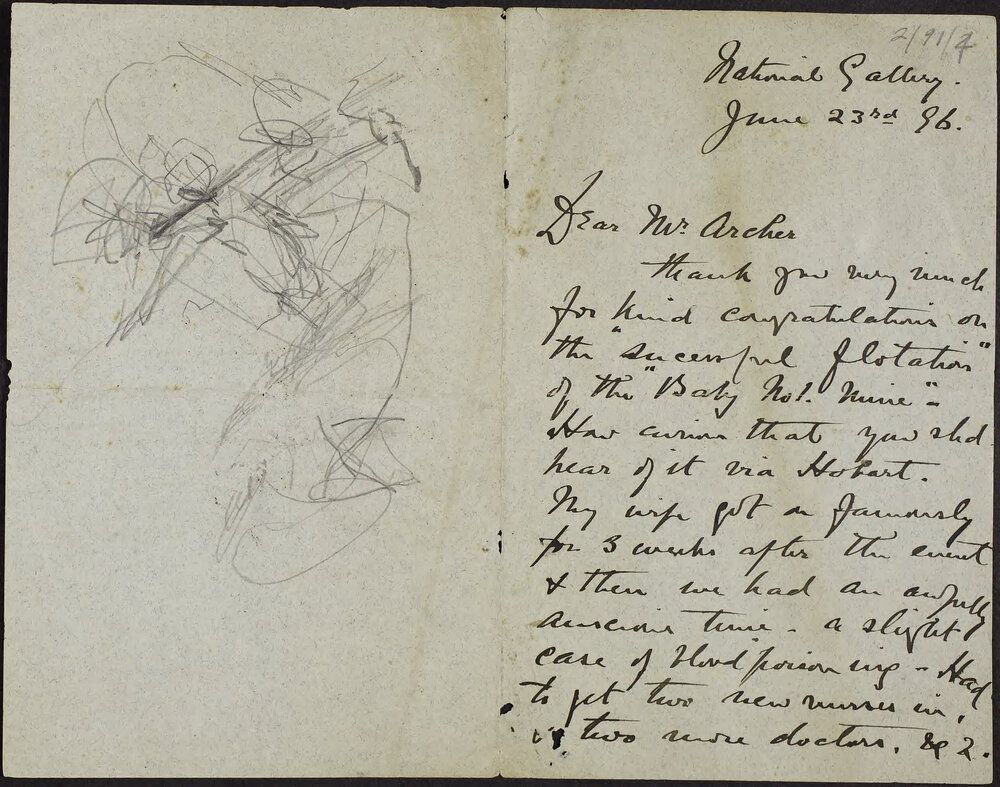 2/91/4
National Gallery.
June 23rd 96.
Dear Mr. Archer
thank you very much
for kind congratulations on
the "sucessful flotation"
of the "Baby No1. Mine" -
How curious that you shd
hear of it via Hobart.
My wife got on famously
for 3 weeks after the event
& then we had an awfully
anxious time - a slight
case of blood poisoning - Had
to get two new nurses in,
" two more doctors.